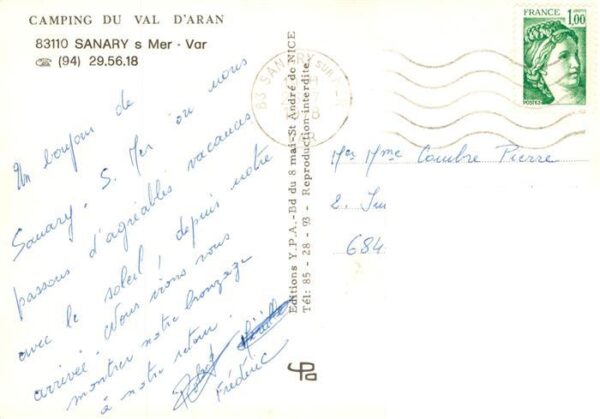 CAMPING DU VAL D'ARAN
83110 SANARY s Mer - Var
☎ (94) 29.56.18
Un bonjour de
Sanary. S. Mer où nous
passons d'agréables vacances
avec le soleil, depuis notre
arrivée. Nous irons vous
montrer notre bronzage
à notre retour.
Frédéric
Editions Y.P.A.-Bd du 8 mai-St André de NICE
Tél: 85 - 28 - 93 - Reproduction interdite.
83 SANARY SUR
FRANCE
1,00
POSTES
Mer Mme Combre Pierre
2. Im
684